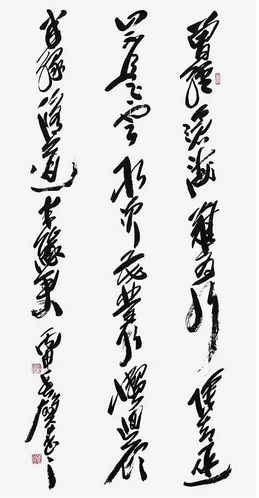 曾經滄海難為水除却巫
山不是雲取次花叢懶回顧
半緣修道半緣君